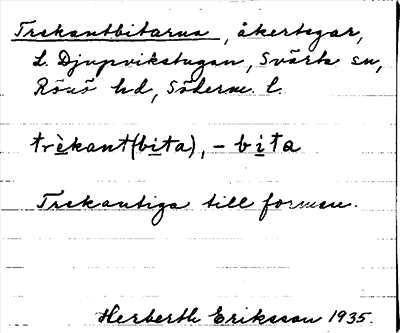 Trekantbitarna, åkertegar,
L. Djupvikstugan, Svärta sn,
Rönö hd, Söderm. l.
trèkant(bita), -bita
Trekantiga till formen.
Herberth Eriksson 1935.